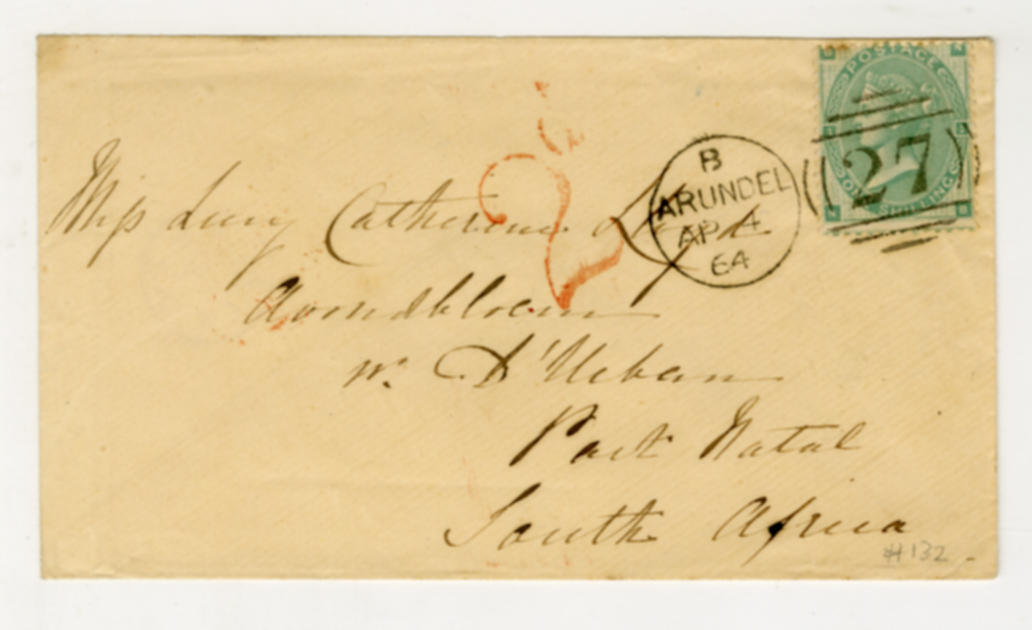 POSTAGE
ONE SHILLING
27
B
ARUNDEL
AP 4
64
2
Miss Lucy Catherine Lloyd
nr. D'Urban
Port Natal
South Africa
#132